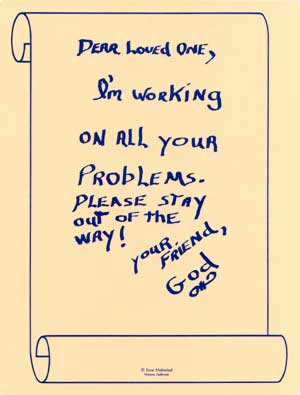 DEAR LOVED ONE,
I'm WORKING
ON ALL YOUR
PROBLEMS.
PLEASE STAY
OUT OF THE
WAY!
YOUR FRIEND,
God
© Love Unlimited